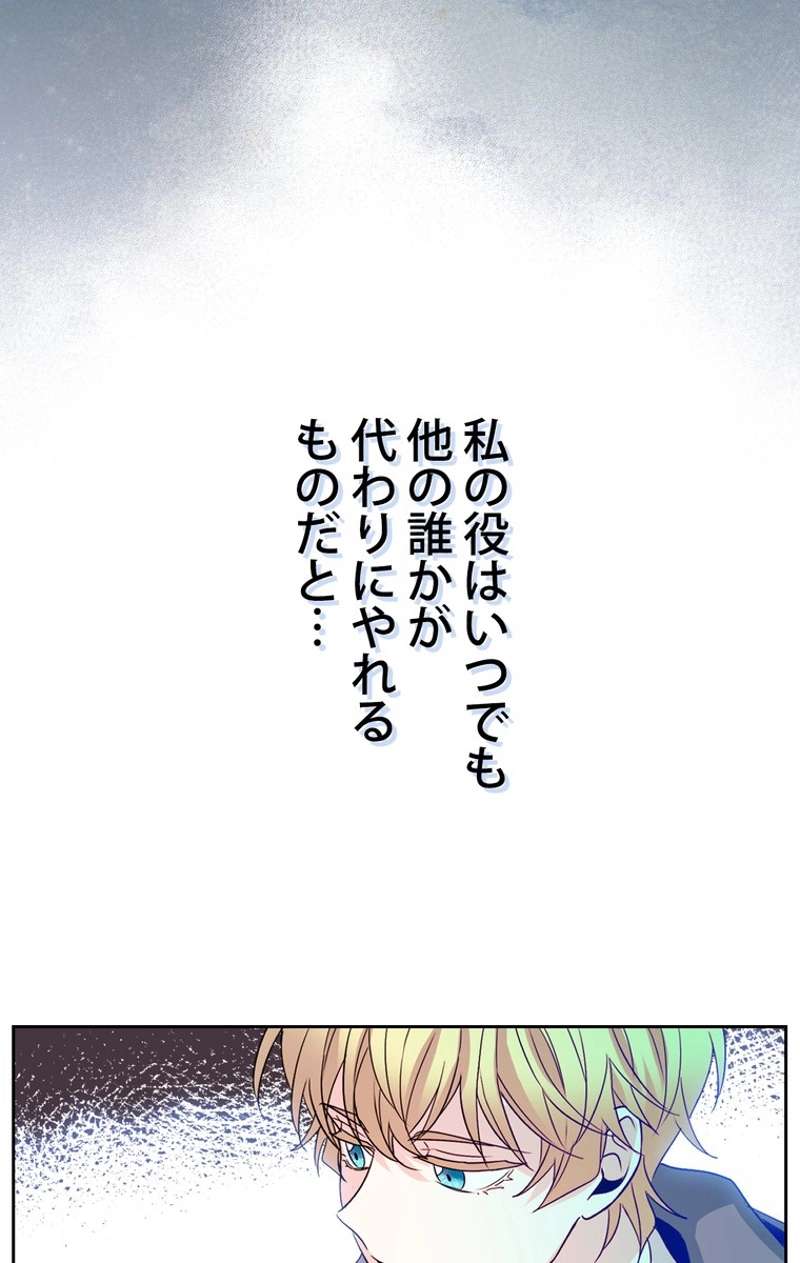 私の役はいつでも
他の誰かが
代わりにやれる
ものだと…